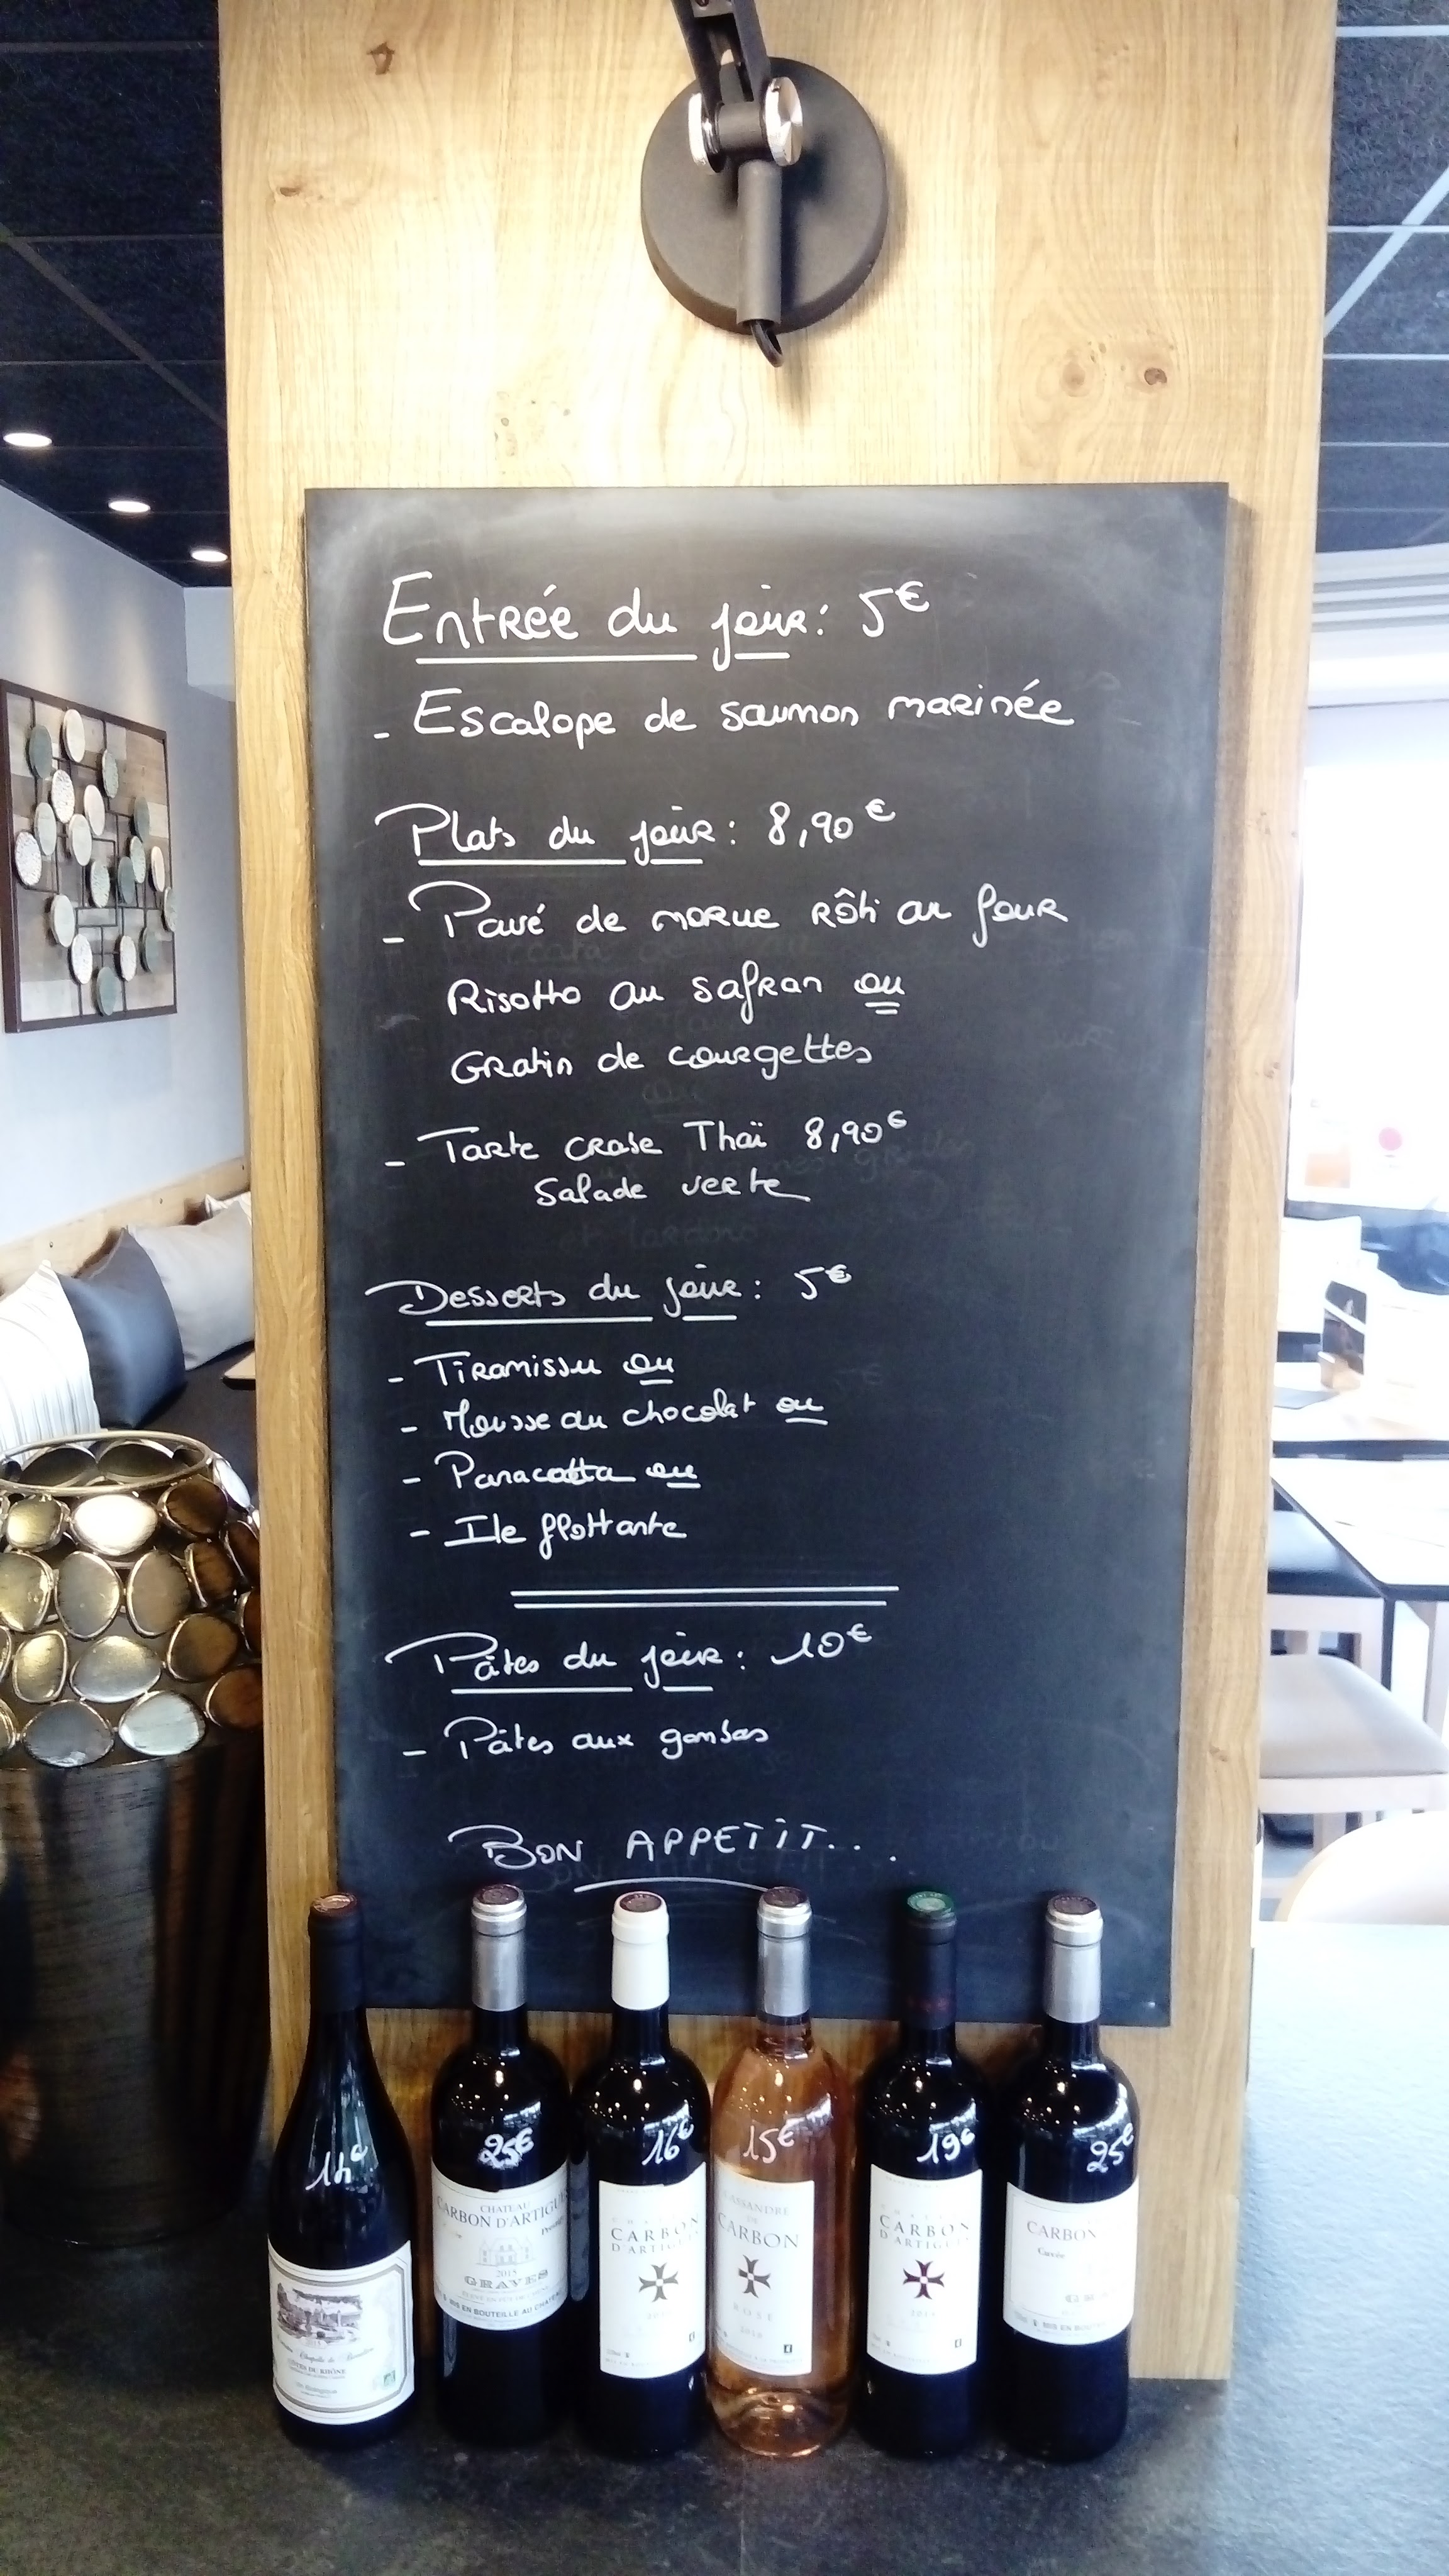 Entrée du jour: 5€
- Escalope de saumon marinée
Plats du jour: 8,90€
- Pavé de morue rôti au four
Risotto au safran ou
Gratin de courgettes
- Tarte crabe Thaï 8,90€
Salade verte
Desserts du jour: 5€
- Tiramissu ou
- Mousse au chocolat ou
- Panacotta ou
- Ile flottante
Pâtes du jour: 10€
- Pâtes aux gambas
BON APPETIT...
25€
16€
15€
19€
25€
CHATEAU
CARBON D'ARTIGUES
2015
GRAVES
MIS EN BOUTEILLE AU CHATEAU
CARBON
D'ARTIGUES
CASSANDRE
DE
CARBON
ROSE
CARBON
D'ARTIGUES
CARBON
Cuvée
MIS EN BOUTEILLE
CÔTES DU RHÔNE